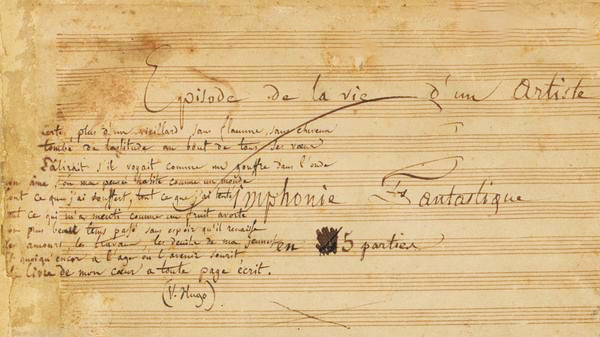 Episode de la vie d'un Artiste
certes, plus d'un vieillard sans flamme, sans cheveux
tombé de lassitude au bout de tous ses vœux
Pâlirait s'il voyait comme un gouffre dans l'onde
mon âme, où ma pensée habite comme un monde
tout ce que j'ai souffert, tout ce que j'ai tenté
tout ce qui m'a menti comme un fruit avorté
mon plus beau temps passé sans espoir qu'il renaisse
les amours, les travaux, les deuils de ma jeunesse
et quoiqu'encor à l'age où l'avenir sourit
le livre de mon cœur à toute page écrit.
(V. Hugo)
Symphonie Fantastique
en 5 parties